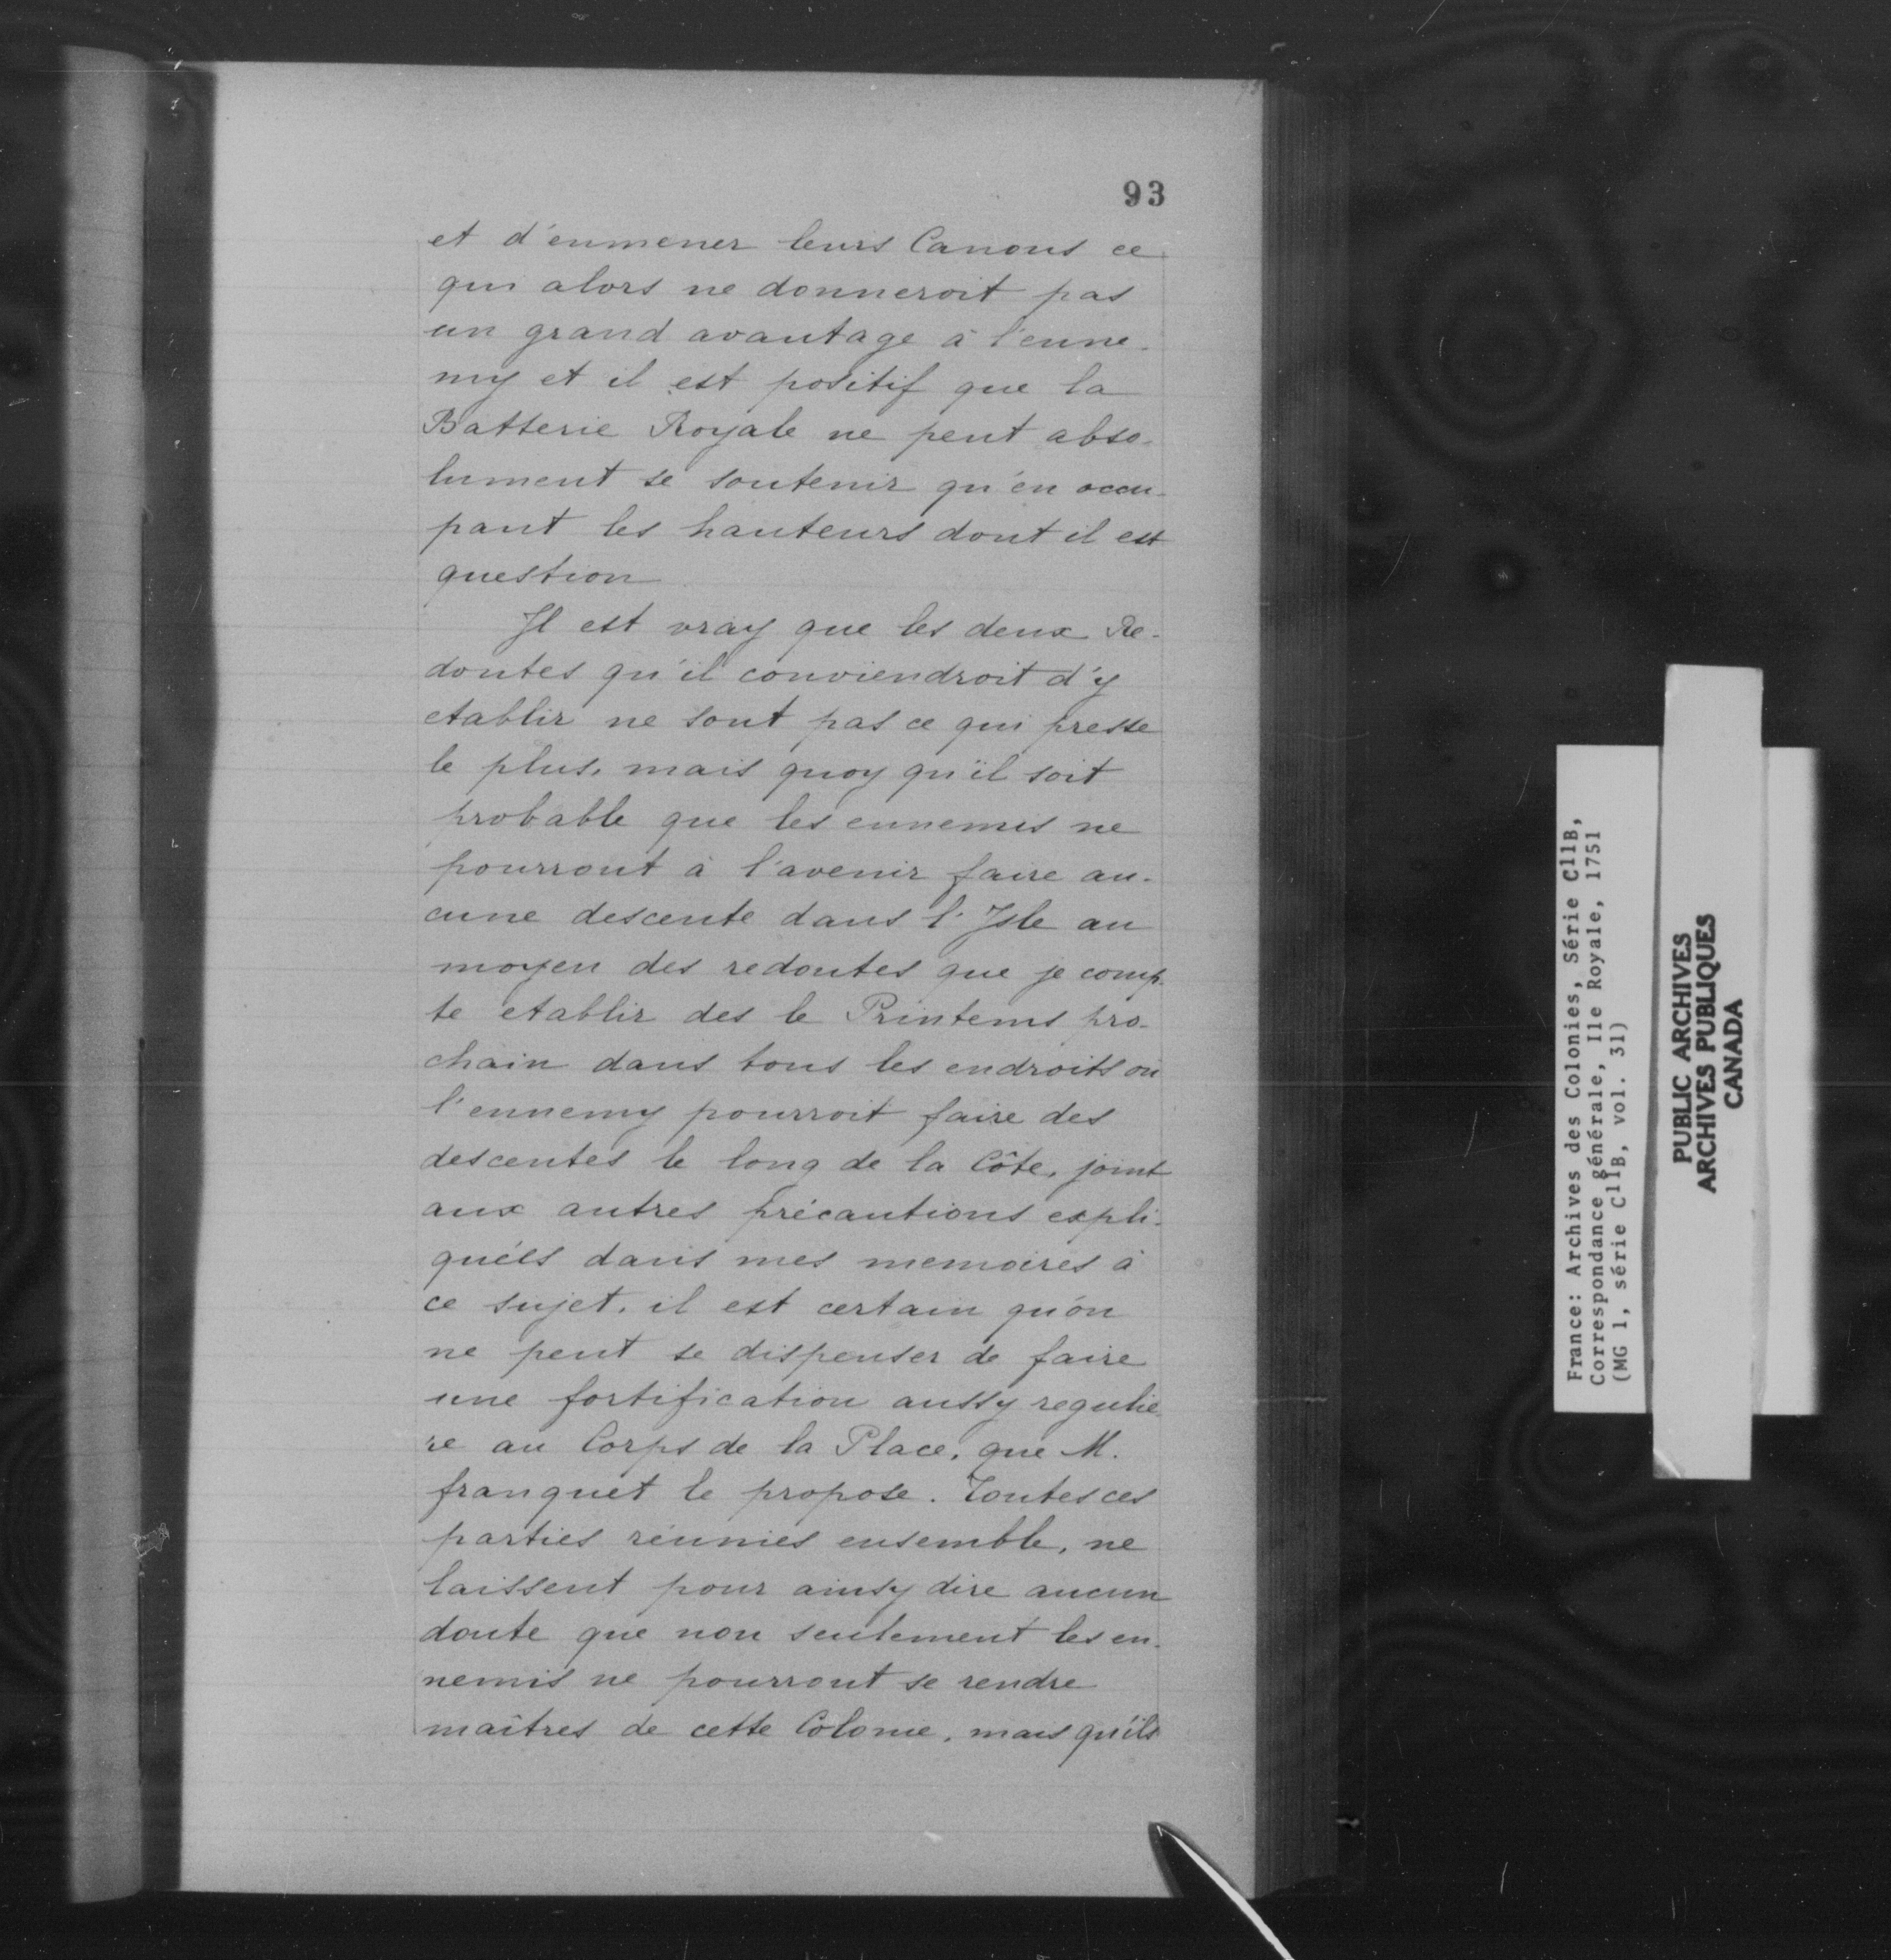 93
et d'enmener leurs Canons ce
qui alors ne donneroit pas
un grand avantage à l'enne-
my et il est positif que la
Batterie Royale ne peut abso-
lument se soutenir qu'en occu-
pant les hauteurs dont il est
question
Il est vray que les deux Re-
doutes qu'il conviendroit d'y
etablir ne sont pas ce qui presse
le plus, mais quoy qu'il soit
probable que les ennemis ne
pourront à l'avenir faire au-
cune descente dans l'Isle au
moyen des redoutes que je comp-
te etablir des le Printems pro-
chain dans tous les endroits où
l'ennemy pourroit faire des
descentes le long de la Côte, joint
aux autres précautions expli-
quées dans mes memoires à
ce sujet, il est certain qu'on
ne peut se dispenser de faire
une fortification aussy regulie-
re au Corps de la Place, que M.
franquet le propose. Toutes ces
parties réunies ensemble, ne
laissent pour ainsy dire aucun
doute que non seulement les en-
nemis ne pourront se rendre
maîtres de cette Colonie, mais qu'ils
France: Archives des Colonies, Série C11B,
Correspondance générale, Ile Royale, 1751
(MG 1, série C11B, vol. 31)
PUBLIC ARCHIVES
ARCHIVES PUBLIQUES
CANADA